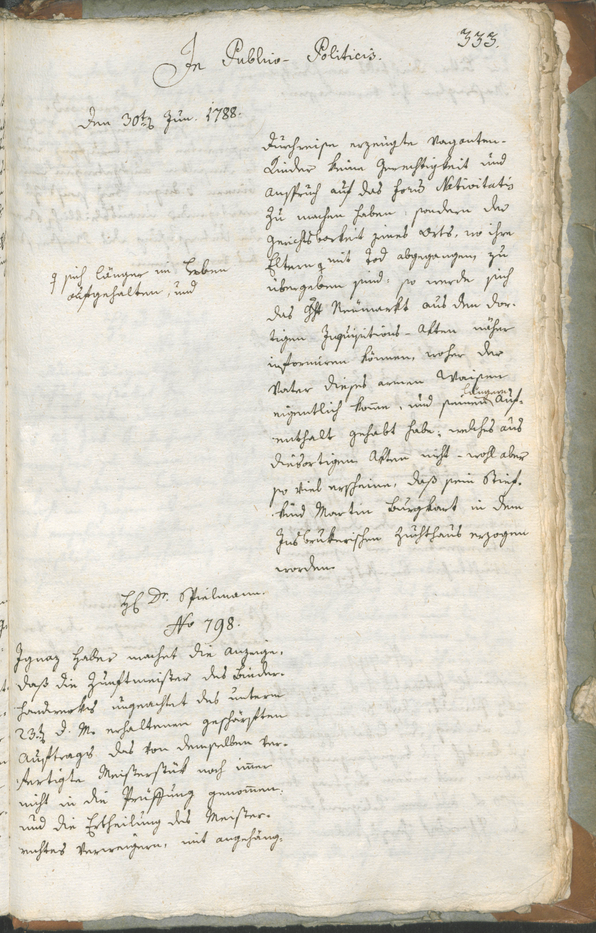 333.
In Publico-Politicis.
Den 30ten Jun. 1788.
durchreise erzeugte Vaganten-
Kinder keine Gerechtigkeit und
Anspruch auf das forum Nativitatis
zu machen haben, sondern der
Gerichtsbarkeit jenes Orts, wo ihre
Eltern mit Tod abgegangen, zu
übergeben sind; so werde sich
das Neumarkt aus den dor-
tigen Inquisitions-Akten näher
informiren können, woher der
Vater dieses armen Waisen
eigentlich komme, und seinen längern Auf-
enthalt gehabt habe, welches aus
diesortigen Akten nicht - wohl aber
so viel erscheine, daß sein Stief-
kind Martin Burgkart in dem
Insbrukerischen Zuchthaus erzogen
worden.
sich länger im Leben
aufgehalten, und
H. Dr. Spielmann.
No 798.
Ignaz Haller machet die Anzeige,
daß die Zunftmeister des Binder-
handwerks ungeachtet des unterm
23ten d. M. erhaltenen geschärften
Auftrags das von demselben ver-
fertigte Meisterstük noch immer
nicht in die Prüffung genommen,
und die Ertheilung des Meister-
rechtes verweigern, mit angehäng-